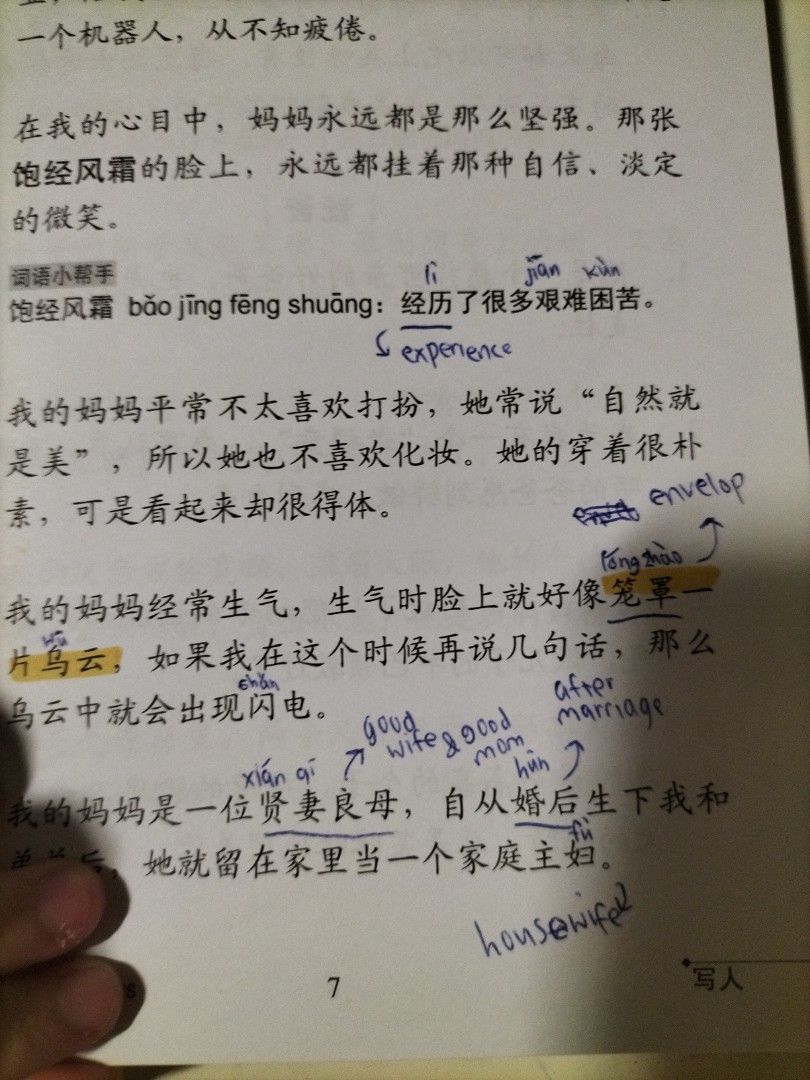 一个机器人，从不知疲倦。
在我的心目中，妈妈永远都是那么坚强。那张
饱经风霜的脸上，永远都挂着那种自信、淡定
的微笑。
词语小帮手
lì jiān kùn
饱经风霜 bǎo jīng fēng shuāng：经历了很多艰难困苦。
experience
我的妈妈平常不太喜欢打扮，她常说“自然就
是美”，所以她也不喜欢化妆。她的穿着很朴
素，可是看起来却很得体。
envelop
lóng zhào
我的妈妈经常生气，生气时脸上就好像笼罩一
wū
片乌云，如果我在这个时候再说几句话，那么
shǎn
乌云中就会出现闪电。
good wife & good mom
after marriage
xián qī hūn
我的妈妈是一位贤妻良母，自从婚后生下我和
fù
后，她就留在家里当一个家庭主妇。
housewife
7
写人